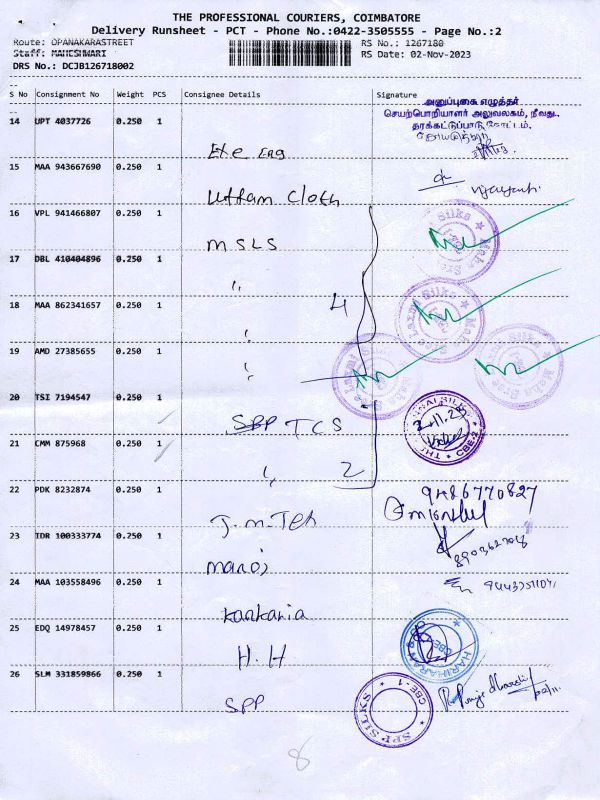 THE PROFESSIONAL COURIERS, COIMBATORE
Delivery Runsheet - PCT - Phone No.:0422-3505555 - Page No.:2
Route: OPANAKARASTREET
RS No.: 1267180
Staff: MAHESHWARI
RS Date: 02-Nov-2023
DRS No.: DCJB126718002
S No Consignment No Weight PCS Consignee Details Signature
அனுப்புகை எழுத்தர்
செயற்பொறியாளர் அலுவலகம், நீவது.
14 UPT 4037726 0.250 1
15 MAA 943667690 0.250 1
Uttam Cloth
16 VPL 941466807 0.250 1
MSLS
17 DBL 410404896 0.250 1
"
4
18 MAA 862341657 0.250 1
"
19 AMD 27385655 0.250 1
"
20 TSI 7194547 0.250 1
SPP TCS
21 CMM 875968 0.250 1
" 2
22 PDK 8232874 0.250 1
9486770827
J.M.Teh
23 IDR 100333774 0.250 1
Manoj
24 MAA 103558496 0.250 1
Karkaria
25 EDQ 14978457 0.250 1
H.H
HARIHARAN
26 SLM 331859866 0.250 1
SPP
SPP SILKS * CBE-1 *
8